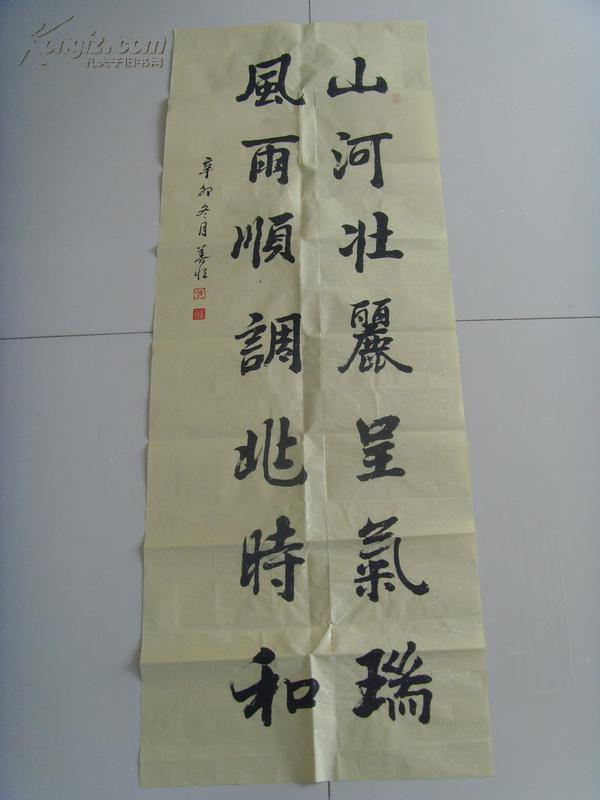 山河壯麗呈氣瑞
風雨順調兆時和
辛卯冬月
Kongfz.com
孔夫子旧书网